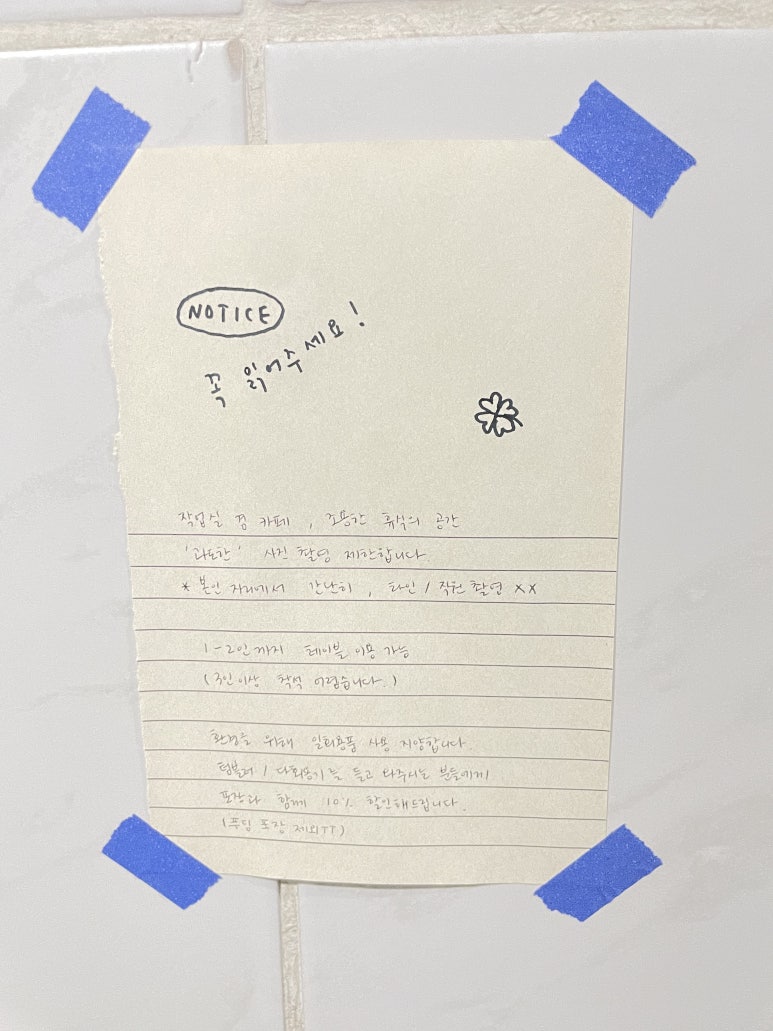 NOTICE
꼭 읽어주세요!
작업실 겸 카페, 조용한 휴식의 공간
'과도한' 사진 촬영 제한합니다
* 본인 자리에서 간단히, 타인/직원 촬영 XX
1-2인까지 테이블 이용 가능
(3인이상 착석 어렵습니다.)
환경을 위해 일회용품 사용 지양합니다.
텀블러/다회용기를 들고 와주시는 분들에게
포장과 함께 10% 할인해드립니다.
(푸딩 포장 제외TT)